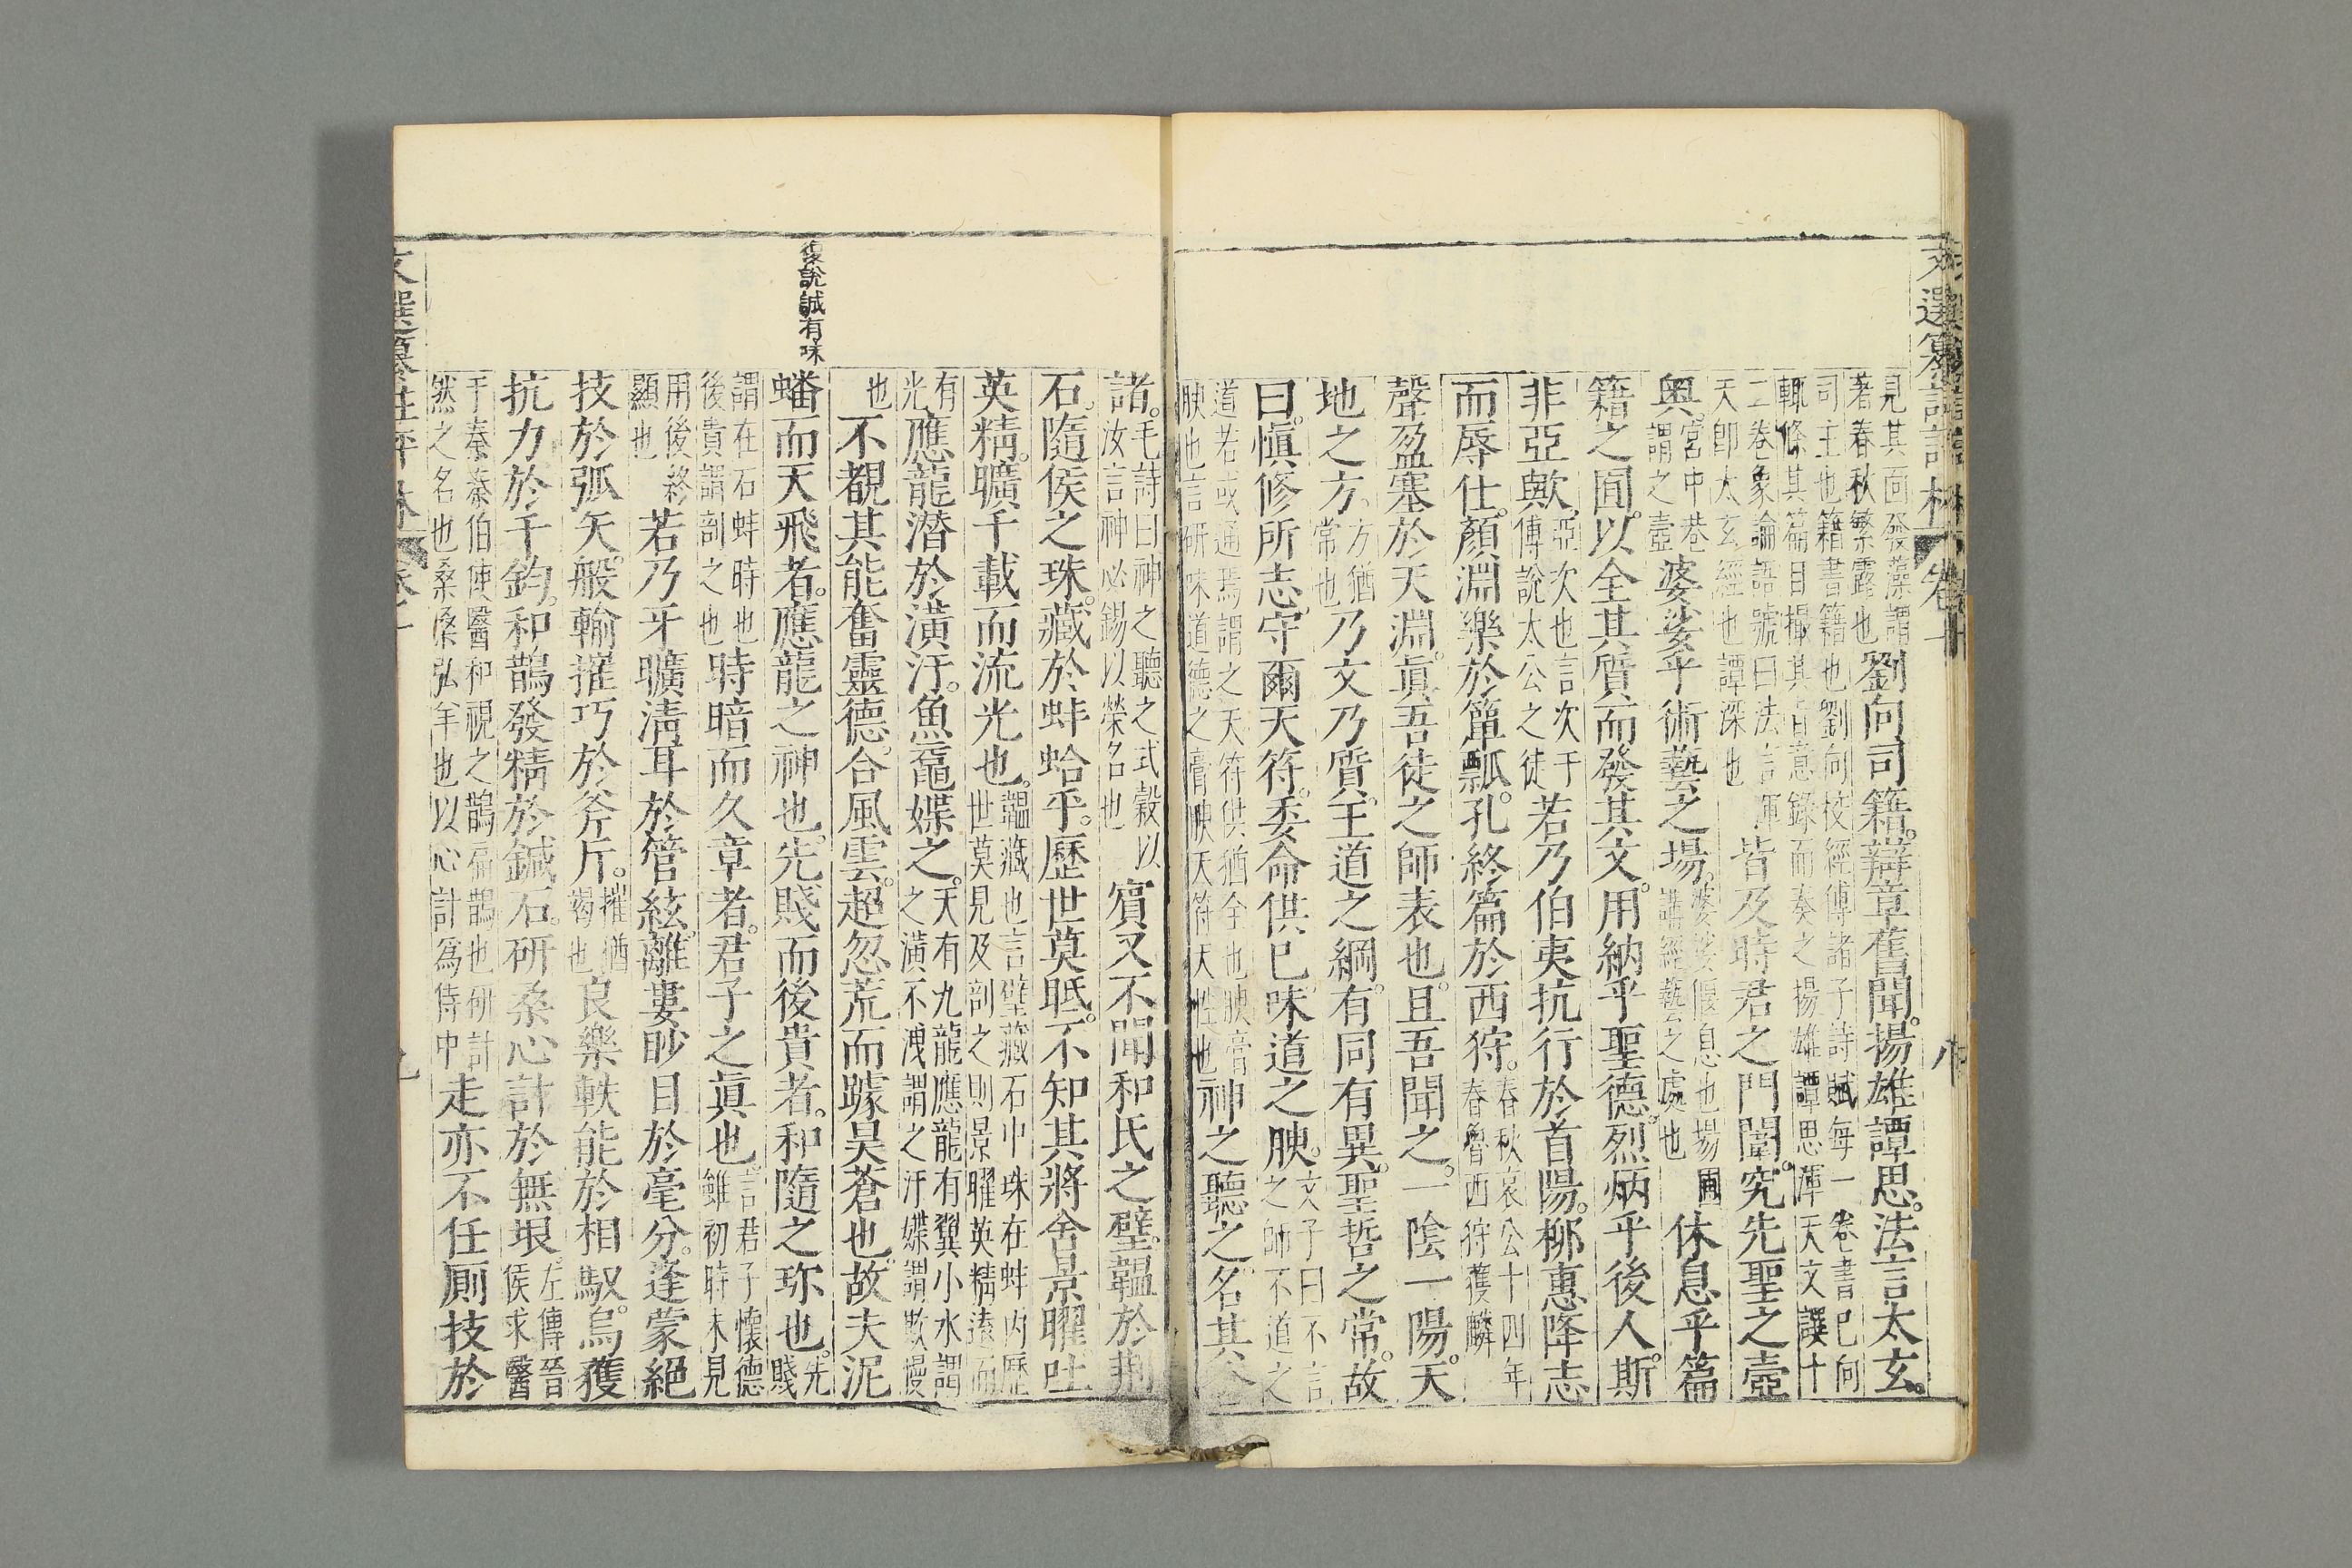 見其面發藻謂
著春秋繁露也劉向司籍。辯章舊聞。揚雄譚思。法言太玄。
司主也籍書籍也劉向校經傳諸子詩賦每一卷書已向
輒條其篇目撮其旨意錄而奏之揚雄譚思渾天文譔十
二卷象論語號曰法言渾
天即太玄經也譚深也皆及時君之門闈。究先聖之壼
奧。宮中巷
謂之壼婆娑乎術藝之場。婆娑偃息也場圃
講經藝之處也休息乎篇
籍之囿。以全其質。而發其文。用納乎聖德。烈炳乎後人。斯
非亞歟。亞次也言次于
傅說太公之徒若乃伯夷抗行於首陽。柳惠降志
而辱仕。顏淵樂於簞瓢。孔終篇於西狩。春秋哀公十四年
春魯西狩獲麟
聲盈塞於天淵。眞吾徒之師表也。且吾聞之。一陰一陽。天
地之方。方猶
常也乃文乃質。王道之綱。有同有異。聖哲之常。故
曰。愼修所志。守爾天符。委命供已。味道之腴。文子曰不言
之師不道之
道若或通焉謂之天符供猶全也腴膏
腴也言研味道德之膏腴天符天性也神之聽之。名其舍
諸。毛詩曰神之聽之式穀以
汝言神必錫以榮名也賓又不聞和氏之璧。韞於荆
石。隨侯之珠。藏於蚌蛤乎。歷世莫眡。不知其將含景曜。吐
英精。曠千載而流光也。韞藏也言璧藏石中珠在蚌內歷
世莫見及剖之則景曜英精遠而
有
光應龍潛於潢汙。魚黿媟之。天有九龍應龍有翼小水謂
之潢不洩謂之汙媟謂欺慢
也不覩其能奮靈德。合風雲。超忽荒而躆昊蒼也。故夫泥
蟠而天飛者。應龍之神也。先賤而後貴者。和隨之珍也。先
賤
謂在石蚌時也
後貴謂剖之也時暗而久章者。君子之眞也。言君子懷德
雖初時未見
用後終
顯也若乃牙曠淸耳於管絃。離婁眇目於毫分。逢蒙絕
技於弧矢。般輸搉巧於斧斤。搉猶
竭也良樂軼能於相馭。烏獲
抗力於千鈞。和鵲發精於鍼石。研桑心計於無垠。左傳晉
侯求醫
于秦秦伯使醫和視之鵲扁鵲也研計
然之名也桑桑弘羊也以心計爲侍中走亦不任廁技於
復說誠有味
文選纂註評林
卷十
八